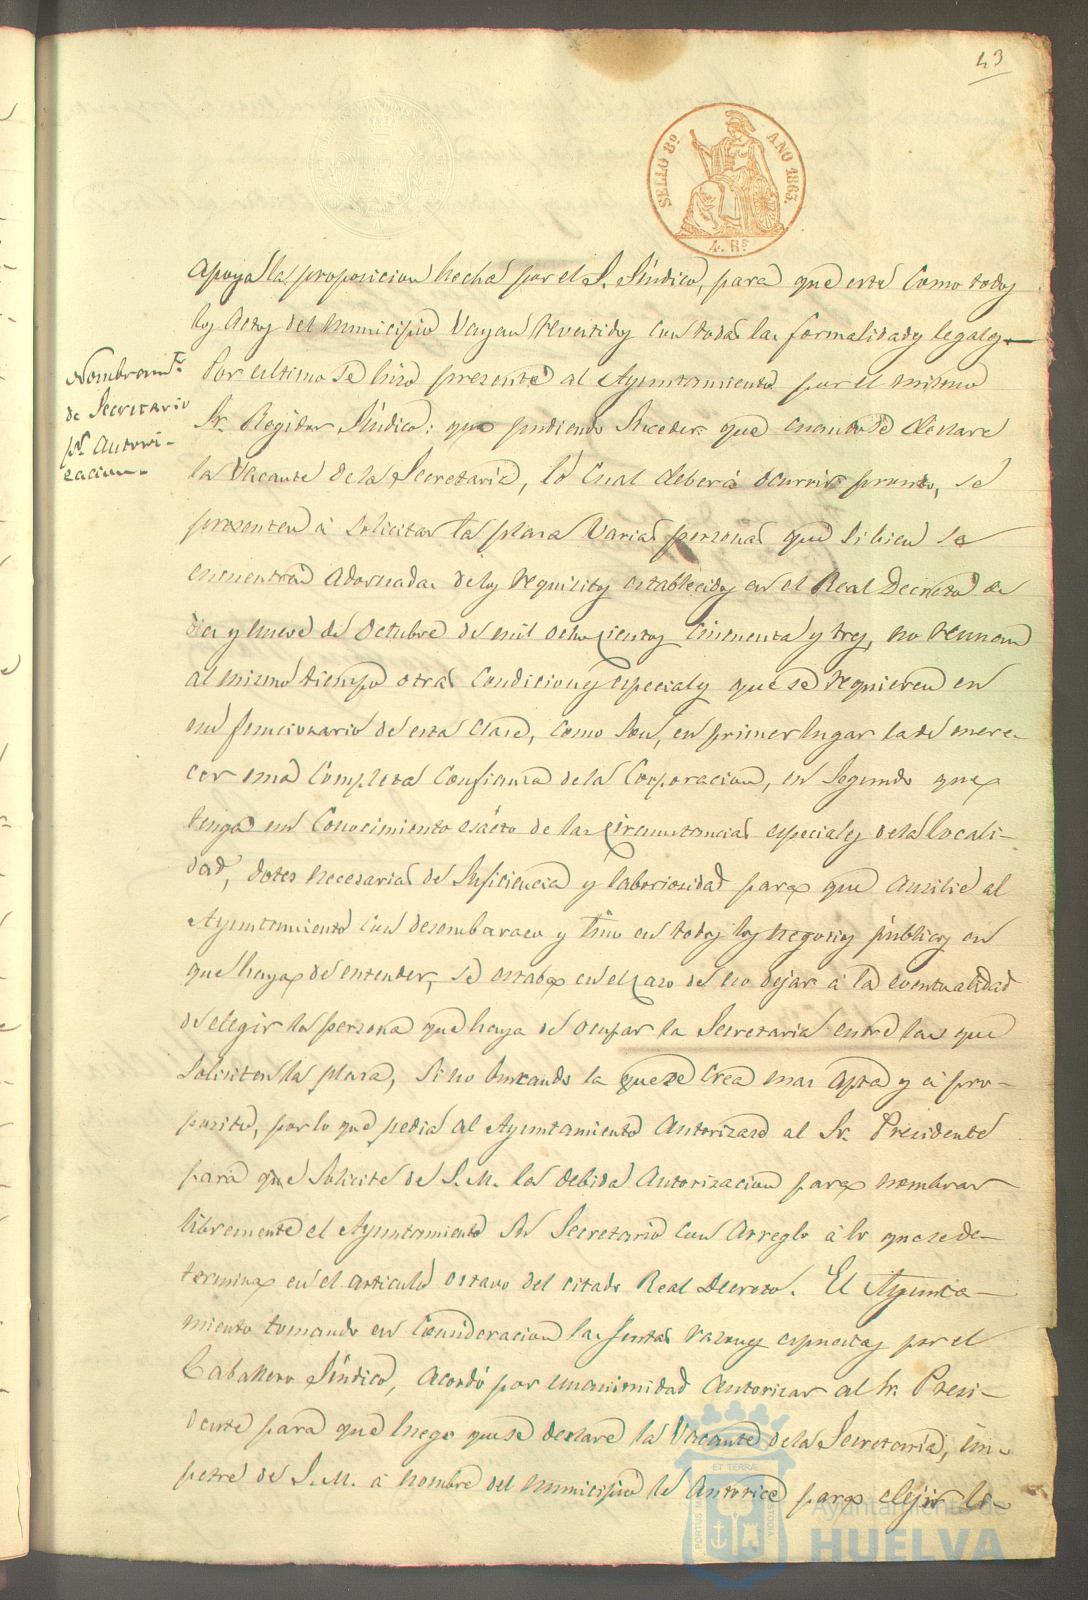 43
SELLO 8º AÑO 1863.
4. Rs
apoya la proposicion hecha por el S. Síndico, para que este como todos
los actos del municipio vayan revestidos con todas las formalidades legales
Nombramto
de Secretario
pa autori-
zacion.
Por ultimo se hizo presente al Ayuntamiento por el mismo
Sr. Regidor Síndico: que pudiendo suceder que cuando se declare
la vacante de la Secretaría, lo cual deberá ocurrir pronto, se
presenten á solicitar la plaza varias personas que si bien se
encuentran adornadas de los requisitos establecidos en el Real Decreto de
diez y nueve de Octubre de mil ochocientos cincuenta y tres, no reunan
al mismo tiempo otras condiciones especiales que se requieren en
un funcionario de esta clase, como son, en primer lugar la de mere-
cer una completa confianza de la Corporacion, en segundo que
tenga un conocimiento esácto de las circunstancias especiales de la locali-
dad, dotes necesarias de suficiencia y laboriosidad para que ausilie al
Ayuntamiento con desembarazo y tino en todos los negocios públicos en
que haya de entender, se estaba en el caso de no dejar á la eventualidad
de elegir la persona que haya de ocupar la Secretaria entre las que
soliciten la plaza, sino buscando la que se crea mas apta y á pro-
posito, por lo que pedia al Ayuntamiento autorizase al Sr. Presidente
para que solicite de S. M. la debida autorizacion para nombrar
libremente el Ayuntamiento su Secretario con arreglo á lo que se de-
termina en el articulo octavo del citado Real Decreto. El Ayunta-
miento tomando en consideracion las justas razones espuestas por el
Caballero Síndico, acordó por unanimidad autorizar al Sr. Presi-
dente para que luego que se declare la vacante de la Secretaría, im-
petre de S. M. á nombre del municipio le autorice para elejir li-
ET TERRÆ
PORTUS MARIS
CUSTODIA
Ayuntamiento de
HUELVA